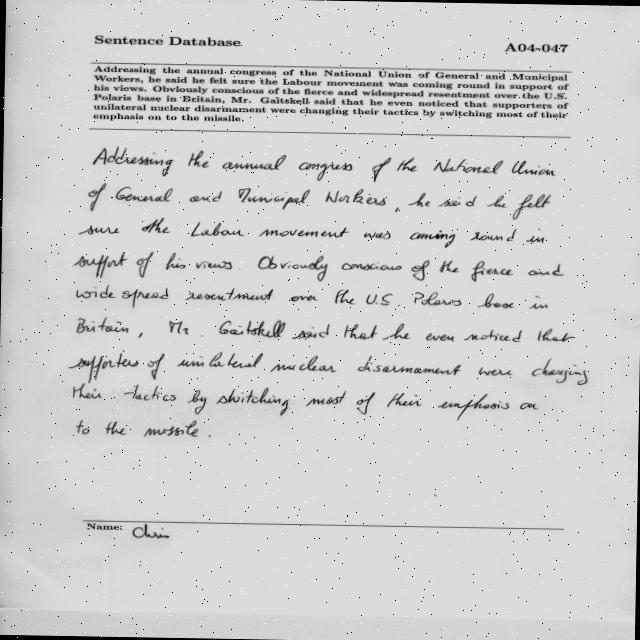 Sentence Database
A04-047
Addressing the annual congress of the National Union of General and Municipal
Workers, he said he felt sure the Labour movement was coming round in support of
his views. Obviously conscious of the fierce and widespread resentment over the U.S.
Polaris base in Britain, Mr. Gaitskell said that he even noticed that supporters of
unilateral nuclear disarmament were changing their tactics by switching most of their
emphasis on to the missile.
Addressing the annual congress of the National Union
of General and Municipal Workers, he said he felt
sure the Labour movement was coming round in
support of his views. Obviously conscious of the fierce and
wide spread resentment over the U.S. Polaris base in
Britain, Mr. Gaitskell said that he even noticed that
supporters of unilateral nuclear disarmament were changing
their tactics by switching most of their emphasis on
to the missile.
Name: Chris